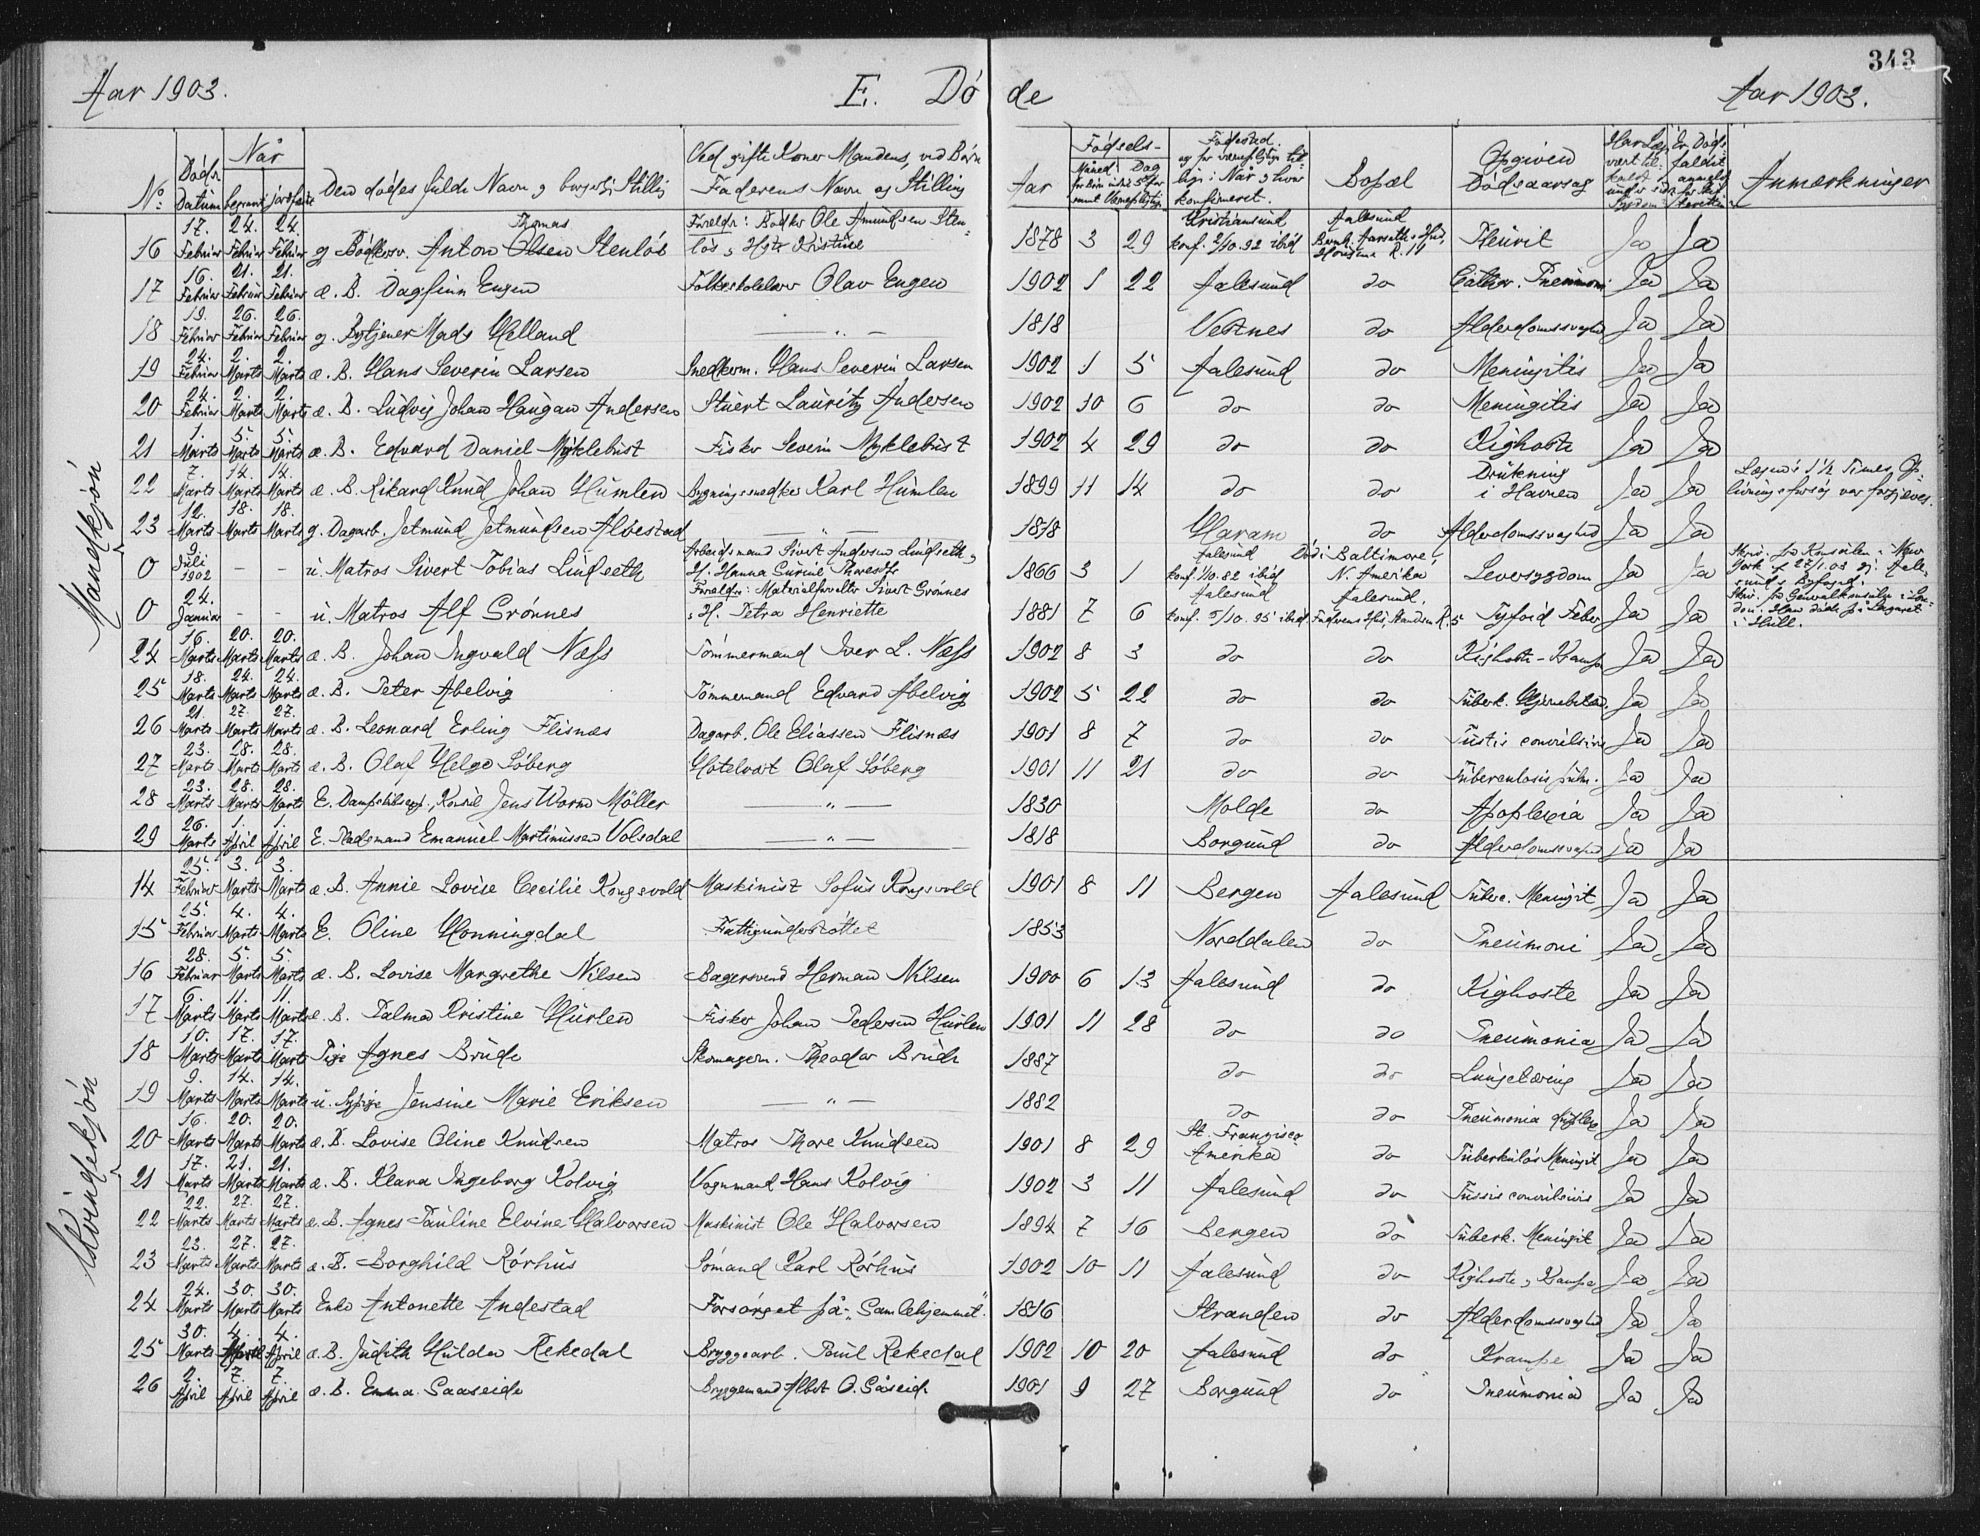 343
Aar 1903. E. Dö de Aar 1903.
No. Döds Datum Når begravet jordfæstet Den dödes fulde Navn og borgerlig Stilling Ved gifte Koner Mandens, ved Börn Faderens Navn og Stilling Aar Födsels- Måned Dag Födested Bopæl Opgiven Dödsaarsag Anmærkninger
Mandkjön
16 17. Februar 24. Februar 24. Februar g. Bödkersv. Anton Thomas Olsen Stenlös Foreldr: Bödker Ole Amundsen Stenlös, Hstr Kristine 1878 3 29 Kristiansund konf. 2/10.92 ibid Aalesund Pleurit Ja Ja
17 16. Februar 21. Februar 21. Februar æ. B. Dagfinn Eugen Folkeskolelærer Olav Eugen 1902 1 22 Aalesund do Cathar. Pneumoni Ja Ja
18 19. Februar 26. Februar 26. Februar g. Bytjener Mads Helland — " — 1818 Vestnes do Alderdomssvaghed Ja Ja
19 24. Februar 2. Marts 2. Marts æ. B. Hans Severin Larsen Snedkerm. Hans Severin Larsen 1902 1 5 Aalesund do Meningitis Ja Ja
20 24. Februar 2. Marts 2. Marts æ. B. Ludvig Johan Haugan Andersen Stuert Lauritz Andersen 1902 10 6 do do Meningitis Ja Ja
21 1. Marts 5. Marts 5. Marts æ. B. Edvard Daniel Myklebust Fisker Severin Myklebust 1902 4 29 do do Kighoste Ja Ja
22 7. Marts 14. Marts 14. Marts æ. B. Rikard Knud Johan Humlen Bygningssnedker Karl Humlen 1899 11 14 do do Drukning i Havnen Ja Ja Lægen i 1½ Times Oplivningsforsög var forgjæves.
23 12. Marts 18. Marts 18. Marts g. Dagarb. Jetmund Jetmundsen Alvestad — " — 1818 Haram do Alderdomssvaghed Ja Ja
0 9. Juli 1902 - - u. Matros Sivert Tobias Lindseth Arbeidsmand Sivert Andersen Lindseth, H. Hanna Surine Thoresdtr 1866 3 1 Aalesund konf. 1/10.82 ibid Död i Baltimore, N. Amerika Leversygdom Ja Ja Skriv. fra Konsulen i New York af 27/1.03 gj. Aalesunds Byfoged.
0 24. Januar - - u. Matros Alf Grönnes Foreldr: Materialforvalter Sivert Grönnes, H. Petra Henriette 1881 7 6 Aalesund konf. 5/10.95 ibid Aalesund, Faderens Hus, R. 5 Tyfoid Feber Ja Ja Skriv. fra Generalkonsulen i London. Han döde på Lazaret i Hull.
24 16. Marts 20. Marts 20. Marts æ. B. Johan Ingvald Næss Tömmermand Iver L. Næss 1902 8 3 do do Kighoste - Krampe Ja Ja
25 18. Marts 24. Marts 24. Marts æ. B. Peter Abelvig Tömmermand Edvard Abelvig 1902 5 22 do do Tuberk. Hjernebetænd. Ja Ja
26 21. Marts 27. Marts 27. Marts æ. B. Leonard Erling Flisnæs Dagarb. Ole Eliassen Flisnæs 1901 8 7 do do Tustis convulsiva Ja Ja
27 23. Marts 28. Marts 28. Marts æ. B. Olaf Helge Söberg Hotelvært Olaf Söberg 1901 11 21 do do Tuberculosis pulm. Ja Ja
28 23. Marts 28. Marts 28. Marts E. Dampskibsexp., Konsul Jens Worm Möller — " — 1830 Molde do Apoplexia Ja Ja
29 26. Marts 1. April 1. April E. Pladsmand Emanuel Martinussen Volsdal — " — 1818 Borgund do Alderdomssvaghed Ja Ja
Kvindekjön
14 25. Februar 3. Marts 3. Marts æ. B. Annie Lovise Cecilie Kongsvold Maskinist Sofus Kongsvold 1901 8 11 Bergen Aalesund Tuberc. Meningit Ja Ja
15 25. Februar 4. Marts 4. Marts E. Oline Honningdal Fattigunderstöttet 1853 Norddalen do Pneumoni Ja Ja
16 28. Februar 5. Marts 5. Marts æ. B. Lovise Margrethe Nilsen Bagersvend Herman Nilsen 1900 6 13 Aalesund do Kighoste Ja Ja
17 6. Marts 11. Marts 11. Marts æ. B. Palma Kristine Hurlen Fisker Johan Pedersen Hurlen 1901 11 28 do do Pneumonia Ja Ja
18 10. Marts 17. Marts 17. Marts Pige Agnes Brude Skomagerm. Theodor Brude 1887 do do Lungetæring Ja Ja
19 9. Marts 14. Marts 14. Marts u. Sypige Jensine Marie Eriksen — " — 1882 do do Pneumonia duplex Ja Ja
20 16. Marts 20. Marts 20. Marts æ. B. Lovise Oline Knudsen Matros Thore Knudsen 1901 8 29 St. Francisco Amerika do Tuberkulös Meningit Ja Ja
21 17. Marts 21. Marts 21. Marts æ. B. Klara Ingeborg Kolvig Vognmand Hans Kolvig 1902 3 11 Aalesund do Tussis convulsivis Ja Ja
22 22. Marts 27. Marts 27. Marts æ. B. Agnes Pauline Elvine Halvorsen Maskinist Ole Halvorsen 1894 7 16 Bergen do Tuberk. Meningit Ja Ja
23 23. Marts 27. Marts 27. Marts æ. B. Borghild Rörhus Sömand Karl Rörhus 1902 10 11 Aalesund do Kighoste, Krampe Ja Ja
24 24. Marts 30. Marts 30. Marts Enke Antonette Andestad Forsörget på "Gamlehjemmet" 1816 Stranden do Alderdomssvaghed Ja Ja
25 30. Marts 4. April 4. April æ. B. Judith Hulda Rekedal Bryggearb. Paul Rekedal 1902 10 20 Aalesund do Krampe Ja Ja
26 2. April 7. April 7. April æ. B. Emma Saaseide Bryggemand Albert O. Såseide 1901 9 27 Borgund do Pneumonia Ja Ja